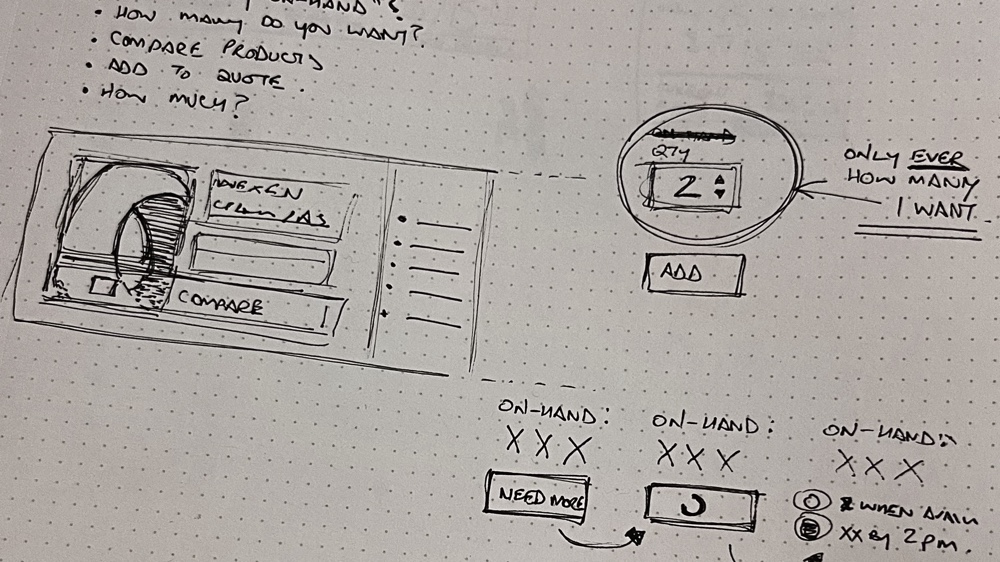 ON-HAND"?
• HOW MANY DO YOU WANT?
• COMPARE PRODUCTS
• ADD TO QUOTE.
• HOW MUCH?
NEXEN
COMPARE
QTY
2
ADD
ONLY EVER
HOW MANY
I WANT
ON-HAND:
XXX
NEED MORE
ON-HAND:
XXX
ON-HAND:
XXX
2 WHEN AVAIL
XX BY 2pm.